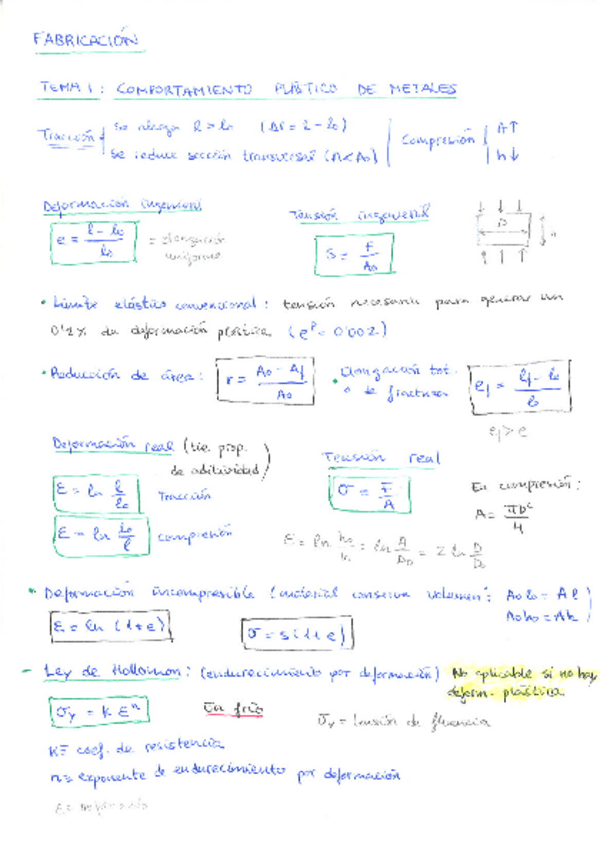 FABRICACIÓN
TEMA 1: COMPORTAMIENTO PLÁSTICO DE METALES
Tracción { se alarga l > l₀ (Δl = l - l₀) | Compresión | A↑
se reduce sección transversal (A < A₀) | h↓
Deformación ingenieril
Tensión ingenieril
e = (l - l₀)/l₀ = elongación uniforme
S = F/A₀
D
h
• Límite elástico convencional: tensión necesaria para generar un
0'2% de deformación plástica (eᵖ = 0'002)
• Reducción de área: r = (A₀ - Af)/A₀
• Elongación tot. o de fractura ef = (lf - l₀)/l₀
ef > e
Deformación real (tie. prop. de aditividad)
Tensión real
ε = ln l/l₀ Tracción
σ = F/A
En compresión: A = πD²/4
ε = ln l₀/l compresión
ε = ln h₀/h = ln A/A₀ = 2 ln D/D₀
• Deformación incompresible (material conserva volumen: A₀l₀ = Al
A₀h₀ = Ah)
ε = ln (1+e)
σ = s(1+e)
- Ley de Hollomon: (endurecimiento por deformación) No aplicable si no hay
deform. plástica
σy = K εⁿ
En frío
σy = tensión de fluencia
K ≡ coef. de resistencia
n ≡ exponente de endurecimiento por deformación